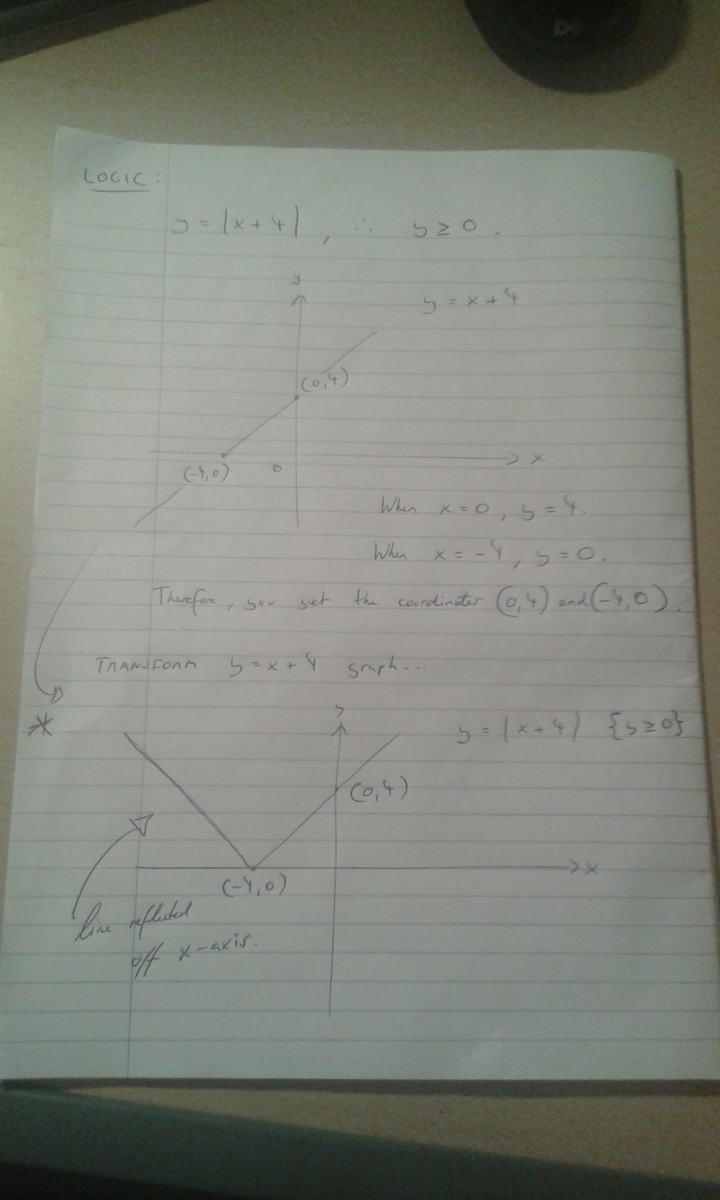 LOGIC:
y = |x + 4| , ∴ y ≥ 0 .
y
y = x + 4
(0,4)
x
(-4,0)
0
When x = 0 , y = 4.
When x = -4 , y = 0 .
Therefore, you get the coordinates (0,4) and (-4,0).
TRANSFORM y = x + 4 graph...
*
y
y = |x + 4| {y ≥ 0}
(0,4)
x
(-4,0)
line reflected
off x-axis.